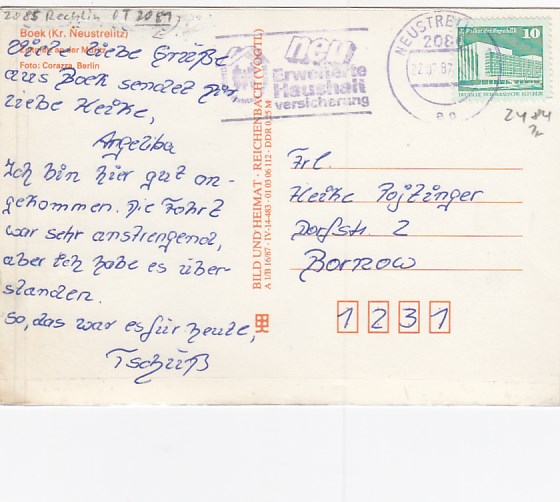 2085 Rechlin OT 2081
Boek (Kr. Neustrelitz)
an der Müritz
Foto: Corazza, Berlin
Viele liebe Grüße
aus Boek sendet Dir,
liebe Heike,
Angelika
Ich bin hier gut an-
gekommen. Die Fahrt
war sehr anstrengend,
aber ich habe es über-
standen.
So, das war es für heute,
Tschüß
BILD UND HEIMAT · REICHENBACH (VOGTL)
A 1/B 16/87 · IV-14-483 · 01 03 06 112 · DDR
neu
Erweiterte
Haushalt
versicherung
NEUSTRELITZ
208
10
Palast der Republik
DEUTSCHE DEMOKRATISCHE REPUBLIK
2484
Frl.
Heike
Dorfstr. 2
Bornow
1231